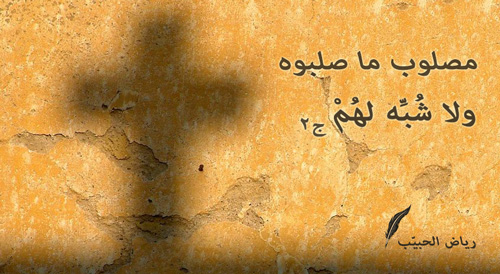 مصلوب ما صلبوه
ولا شُبِّه لهُمْ ج٢
رياض الحبيّب